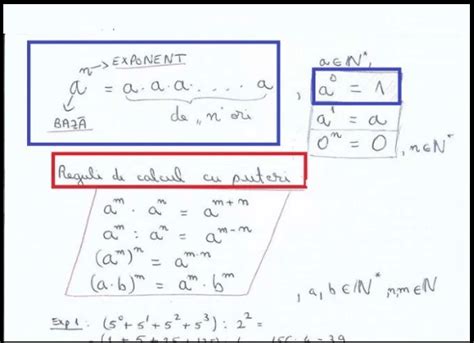 EXPONENT
aⁿ = a·a·a· . . . . a , a∈ℕ*,
BAZĂ
de „n" ori
a⁰ = 1
a¹ = a
0ⁿ = 0 , n∈ℕ*
Reguli de calcul cu puteri
aᵐ · aⁿ = aᵐ⁺ⁿ
aᵐ : aⁿ = aᵐ⁻ⁿ
(aᵐ)ⁿ = aᵐ·ⁿ
(a·b)ᵐ = aᵐ·bᵐ , a,b∈ℕ*, n,m∈ℕ
Exp 1 : (5⁰+5¹+5²+5³) : 2² =
= (1 + 5 + 25 + 125) : 4 = 156 : 4 = 39